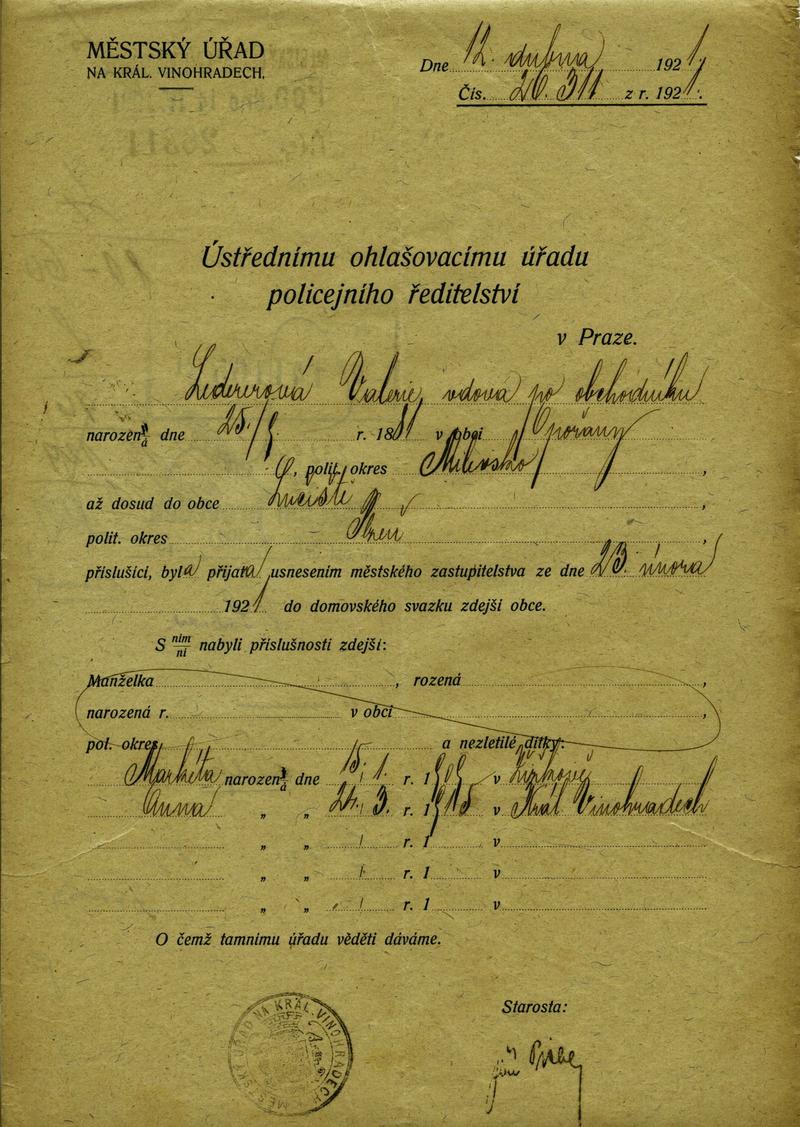 MĚSTSKÝ ÚŘAD
NA KRÁL. VINOHRADECH.
Dne 12. dubna 1921.
Čís. 20.311 z r. 1921.
Ústřednímu ohlašovacímu úřadu
policejního ředitelství
v Praze.
Ledererová Valerie, vdova po obchodníku
narozený/á dne r. 1881 v obci Opořany
polit. okres Milevsko,
až dosud do obce
polit. okres,
příslušící, byla přijata usnesením městského zastupitelstva ze dne 23. února
1921 do domovského svazku zdejší obce.
S ním/ní nabyli příslušnosti zdejší:
Manželka, rozená,
narozená r. v obci,
pol. okres a nezletilé dítky:
Markéta narozený/á dne 15. 1. r. 1909 v
Anna „ „ 24. 3. r. 1915 v Král Vinohradech
„ „ r. 1 v
„ „ r. 1 v
„ „ r. 1 v
O čemž tamnímu úřadu věděti dáváme.
Starosta:
MĚSTSKÝ ÚŘAD NA KRÁL. VINOHRADECH